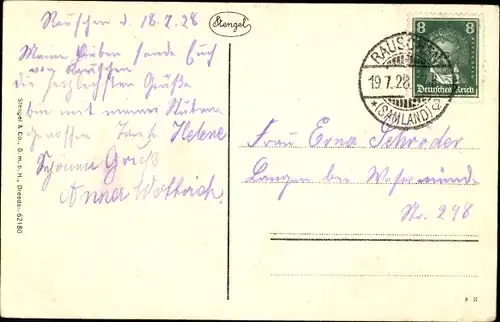 Rauschen d. 18.7.28
Meine Lieben sende Euch
von Rauschen
die herzlichsten Grüße
bin mit meinen Stuben
genossen Tante Helene
Schönen Gruß
Anna
Stengel
Stengel & Co., G. m. b. H., Dresden 62180
8 8
Deutsches Reich
RAUSCHEN
19.7.28.
*(SAMLAND) a
Frau Erna Schröder
Langen bei Wesermünde
Nr. 248